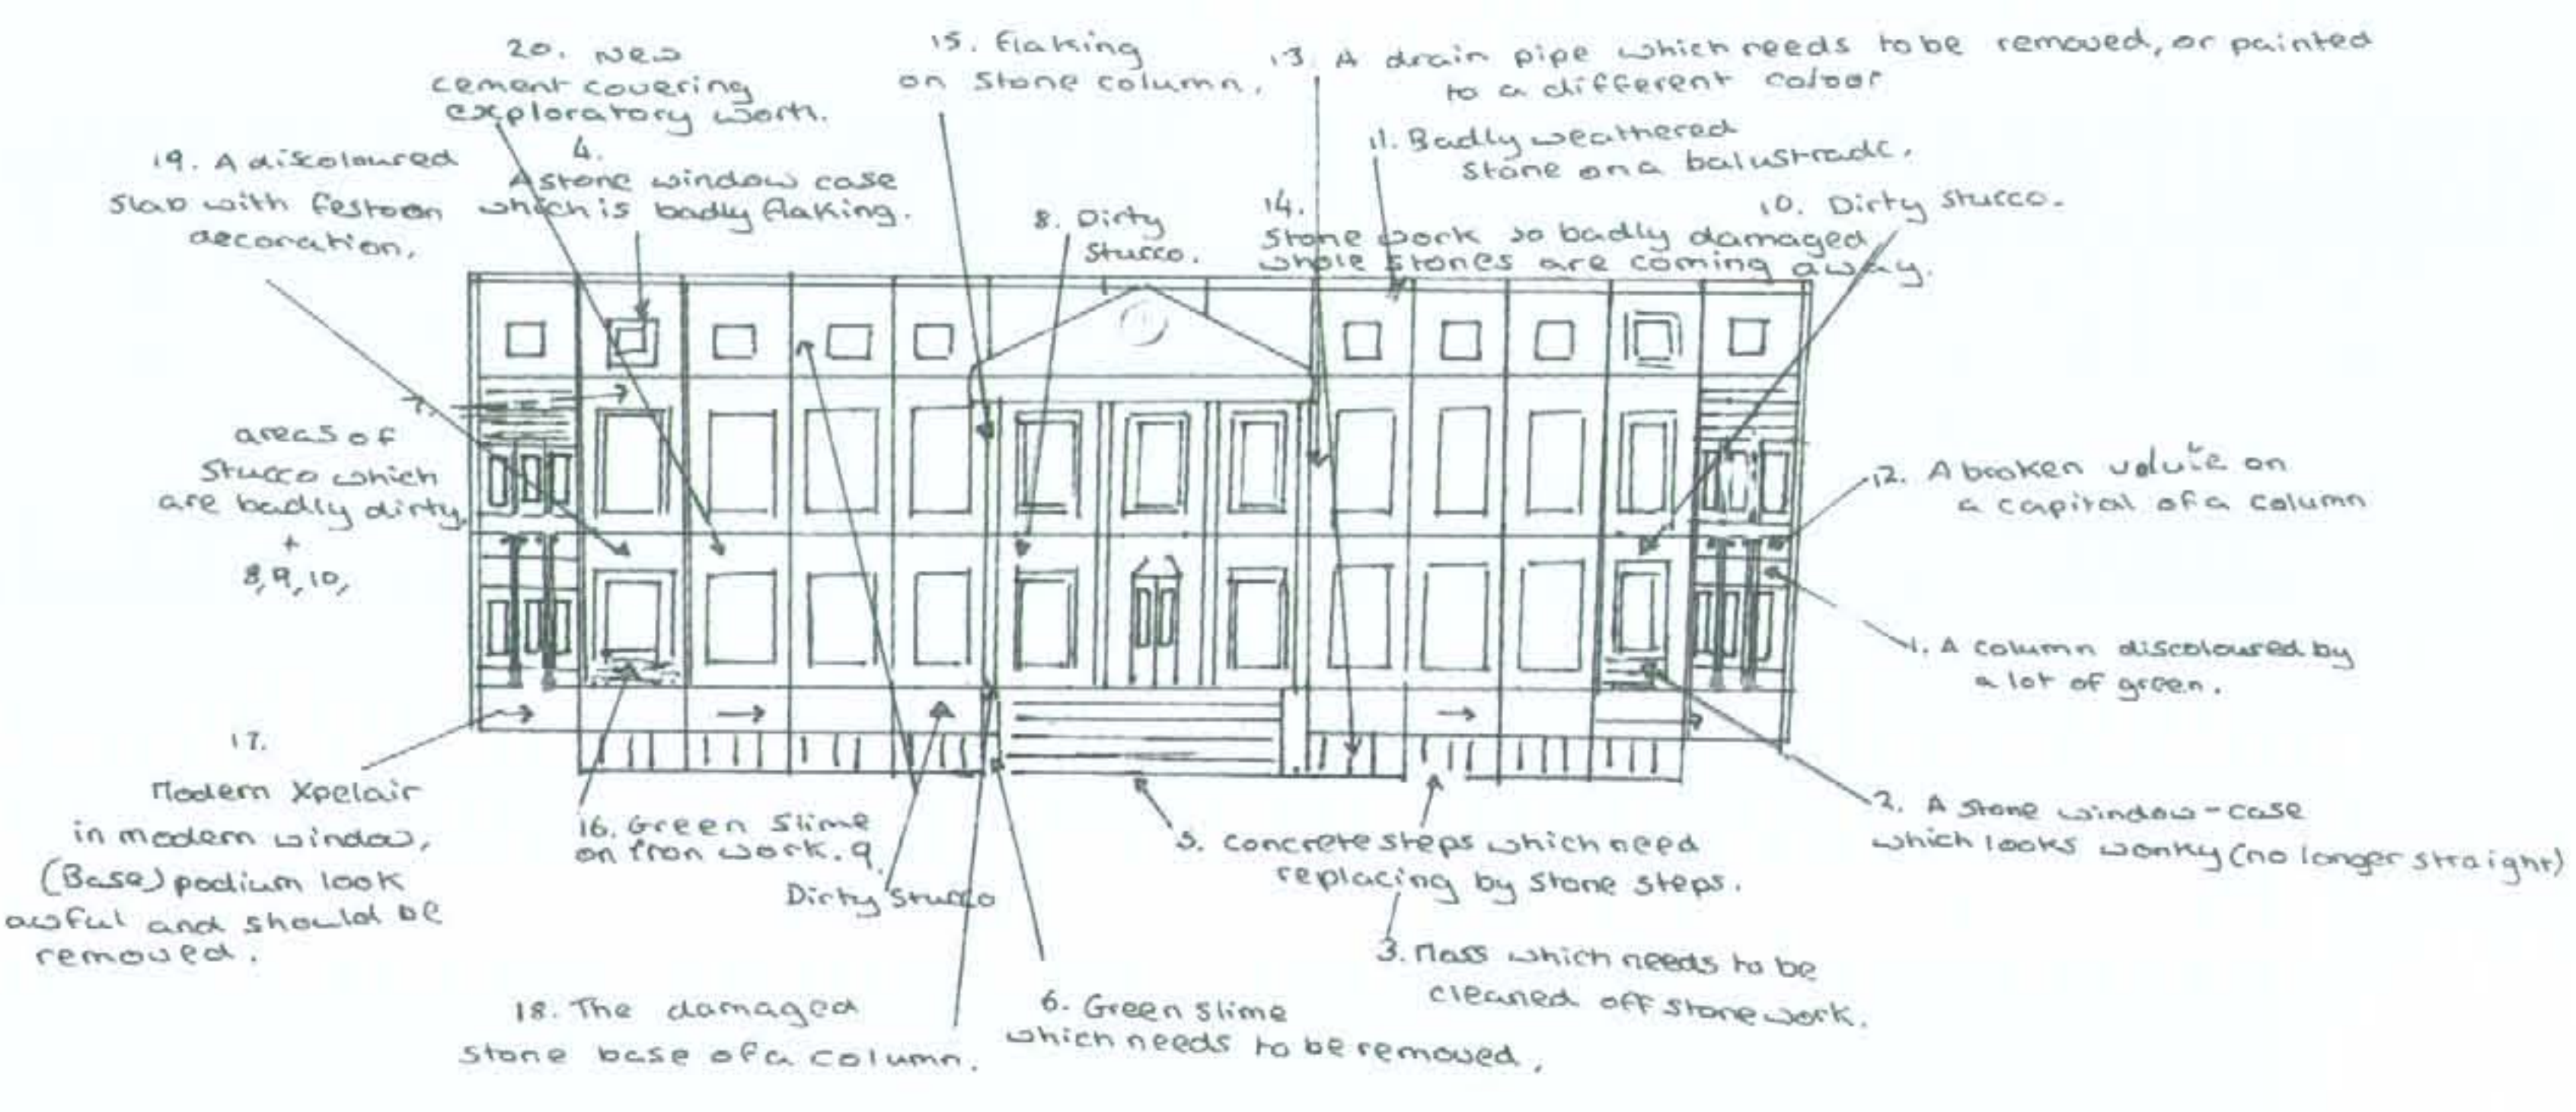 20. New
cement covering
exploratory work.
15. Flaking
on stone column.
13. A drain pipe which needs to be removed, or painted
to a different colour
11. Badly weathered
stone on a balustrade.
19. A discoloured
slab with festoon
decoration.
4.
A stone window case
which is badly flaking.
8. Dirty
Stucco.
14.
Stone work so badly damaged
whole stones are coming away.
10. Dirty stucco.
7.
areas of
Stucco which
are badly dirty
+
8, 9, 10,
12. A broken volute on
a capital of a column
1. A column discoloured by
a lot of green.
17.
Modern Xpelair
in modern window,
(Base) podium look
awful and should be
removed.
16. Green Slime
on Iron work.
9.
Dirty Stucco
5. Concrete steps which need
replacing by stone steps.
2. A stone window-case
which looks wonky (no longer straight)
3. Moss which needs to be
cleaned off stone work.
18. The damaged
stone base of a column.
6. Green slime
which needs to be removed.